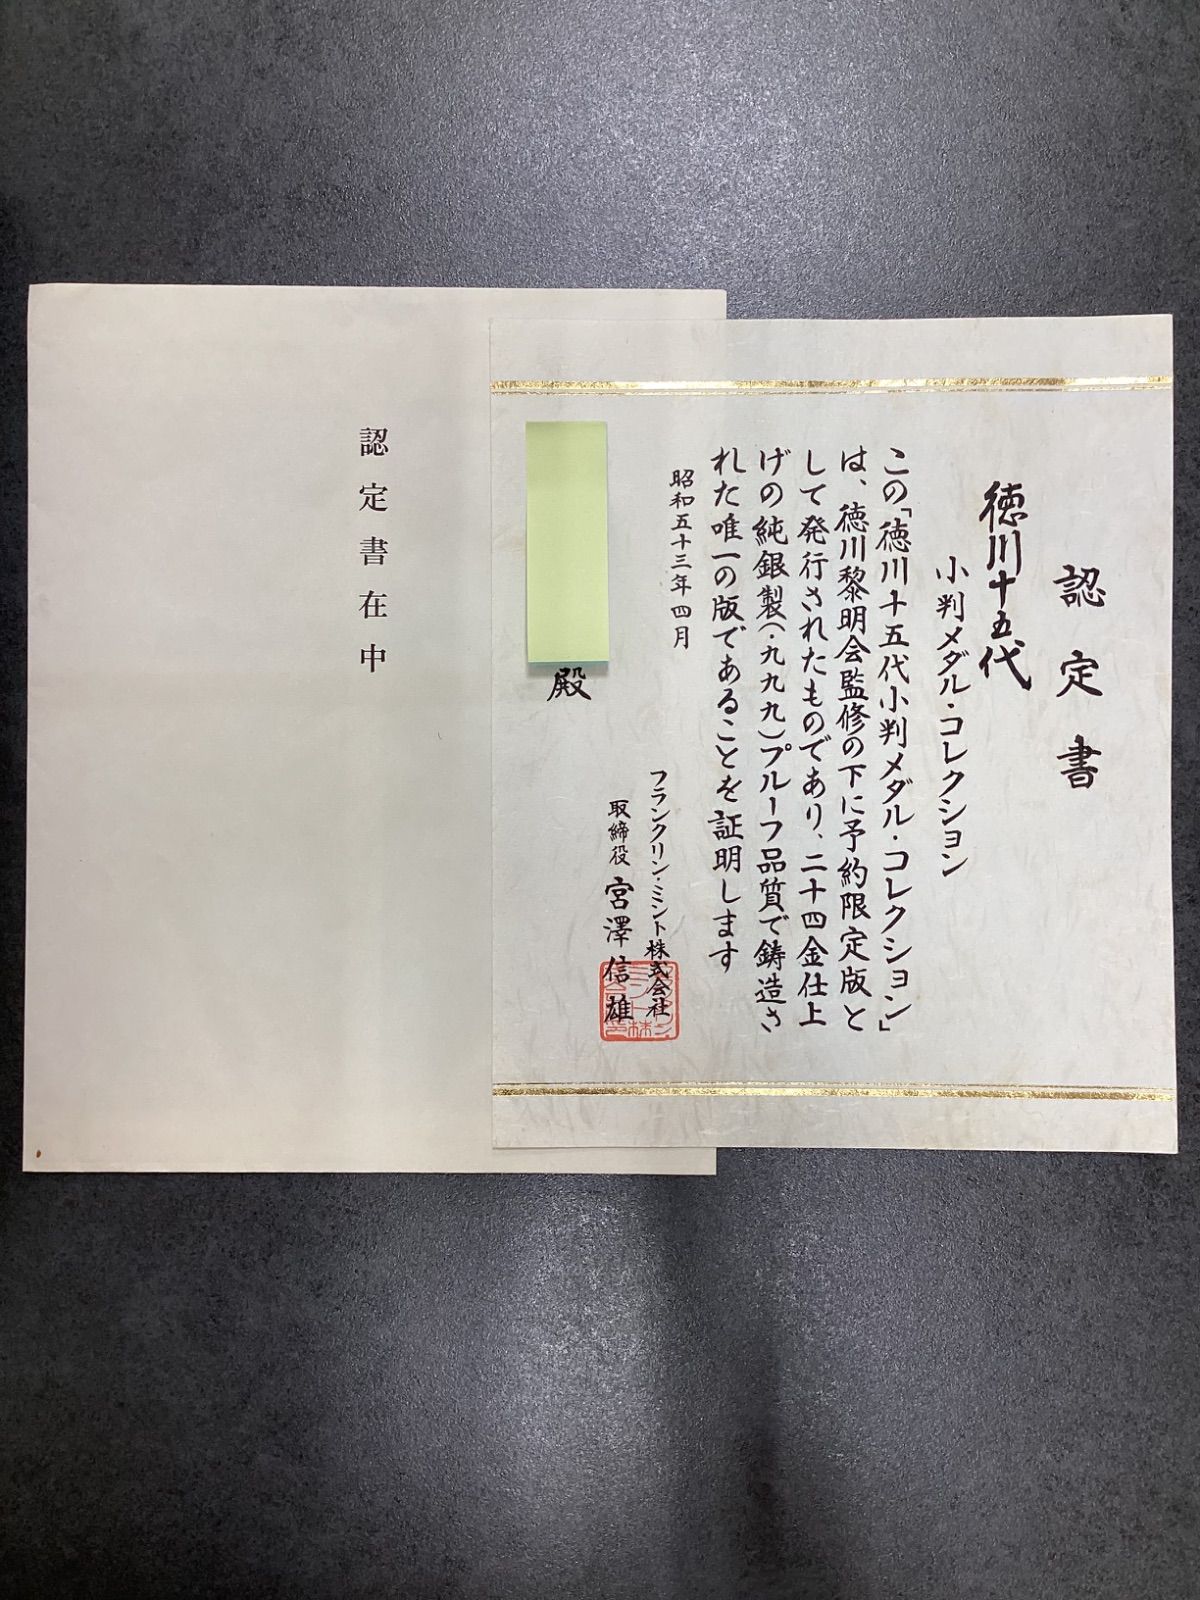 認定書
徳川十五代
小判メダル・コレクション
この「徳川十五代小判メダル・コレクション」
は、徳川黎明会監修の下に予約限定版と
して発行されたものであり、二十四金仕上
げの純銀製(・九九九)プルーフ品質で鋳造さ
れた唯一の版であることを証明します
昭和五十三年四月
フランクリン・ミント株式会社
取締役 宮澤信雄
殿
認定書在中